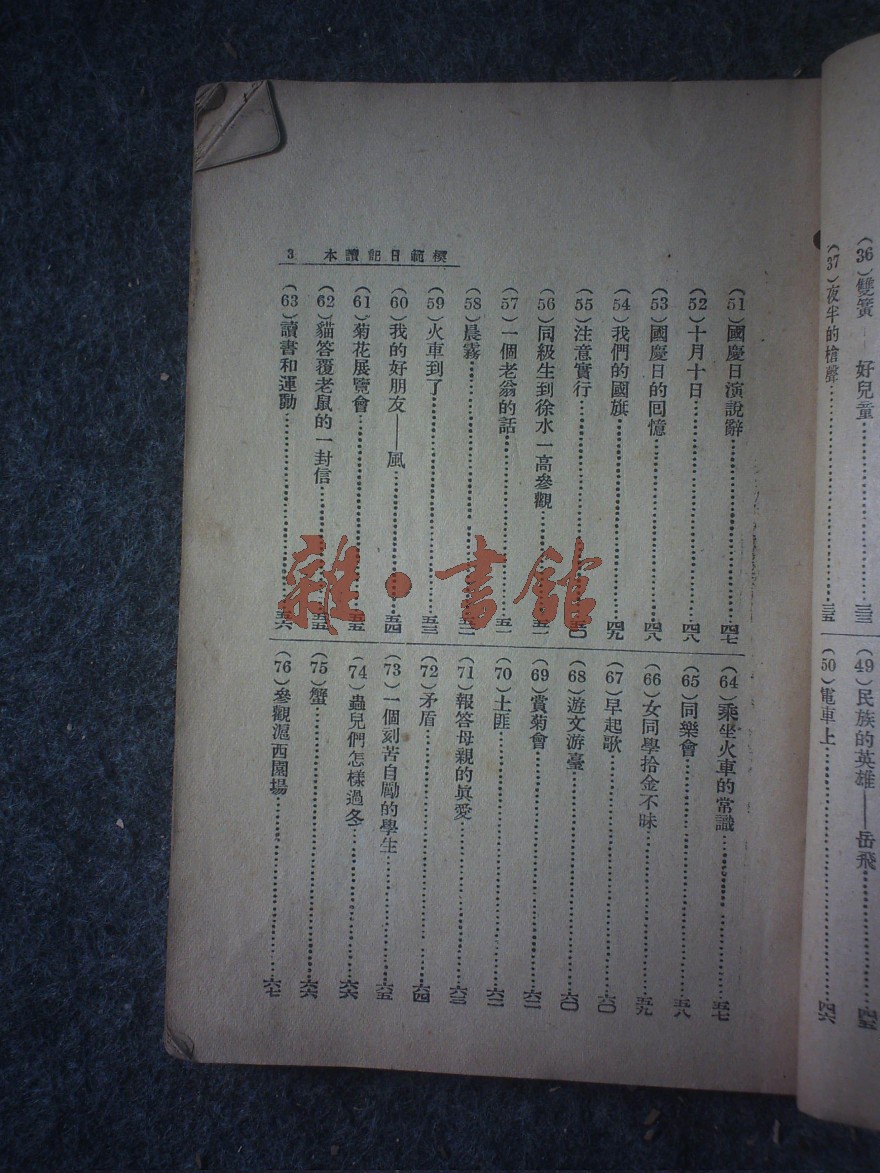 (36)雙簧——好兒童……三三
(37)夜半的槍聲……三五
(49)民族的英雄——岳飛……四五
(50)電車上……四六
模範日記讀本 3
(51)國慶日演說辭……四七
(52)十月十日……四八
(53)國慶日的回憶……四八
(54)我們的國旗……四九
(55)注意實行……五〇
(56)同級生到徐水一高參觀……五一
(57)一個老翁的話……五一
(58)晨霧……五二
(59)火車到了……五三
(60)我的好朋友——風……五四
(61)菊花展覽會……五五
(62)貓答覆老鼠的一封信……五五
(63)讀書和運動……五六
(64)乘坐火車的常識……五七
(65)同樂會……五八
(66)女同學拾金不昧……五九
(67)早起歌……六〇
(68)遊文游臺……六〇
(69)賞菊會……六一
(70)土匪……六二
(71)報答母親的眞愛……六三
(72)矛盾……六四
(73)一個刻苦自勵的學生……六五
(74)蟲兒們怎樣過冬……六六
(75)蟹……六六
(76)參觀滬西園場……六七
雜·書館